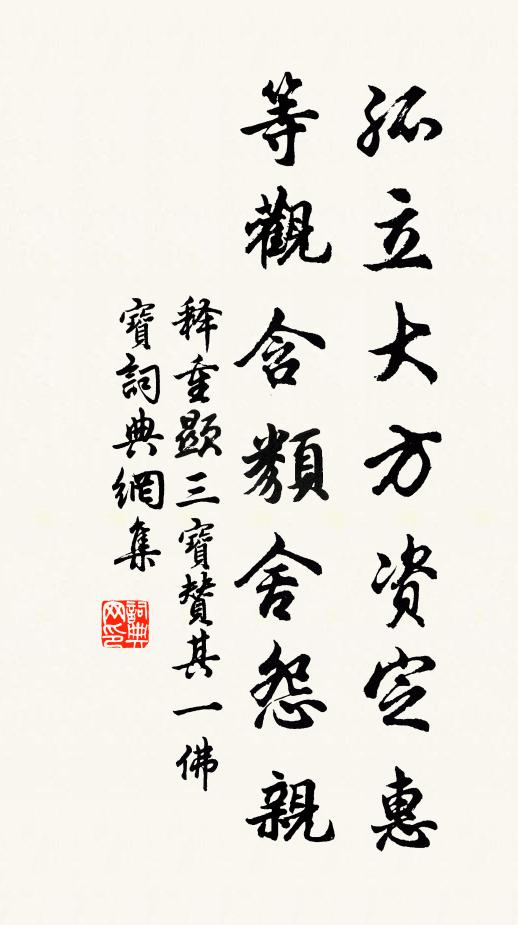 孤立大方资定惠
等觀含類舍怨親
释重顯三寶賛其一佛
寶詞典網集
詞典網印